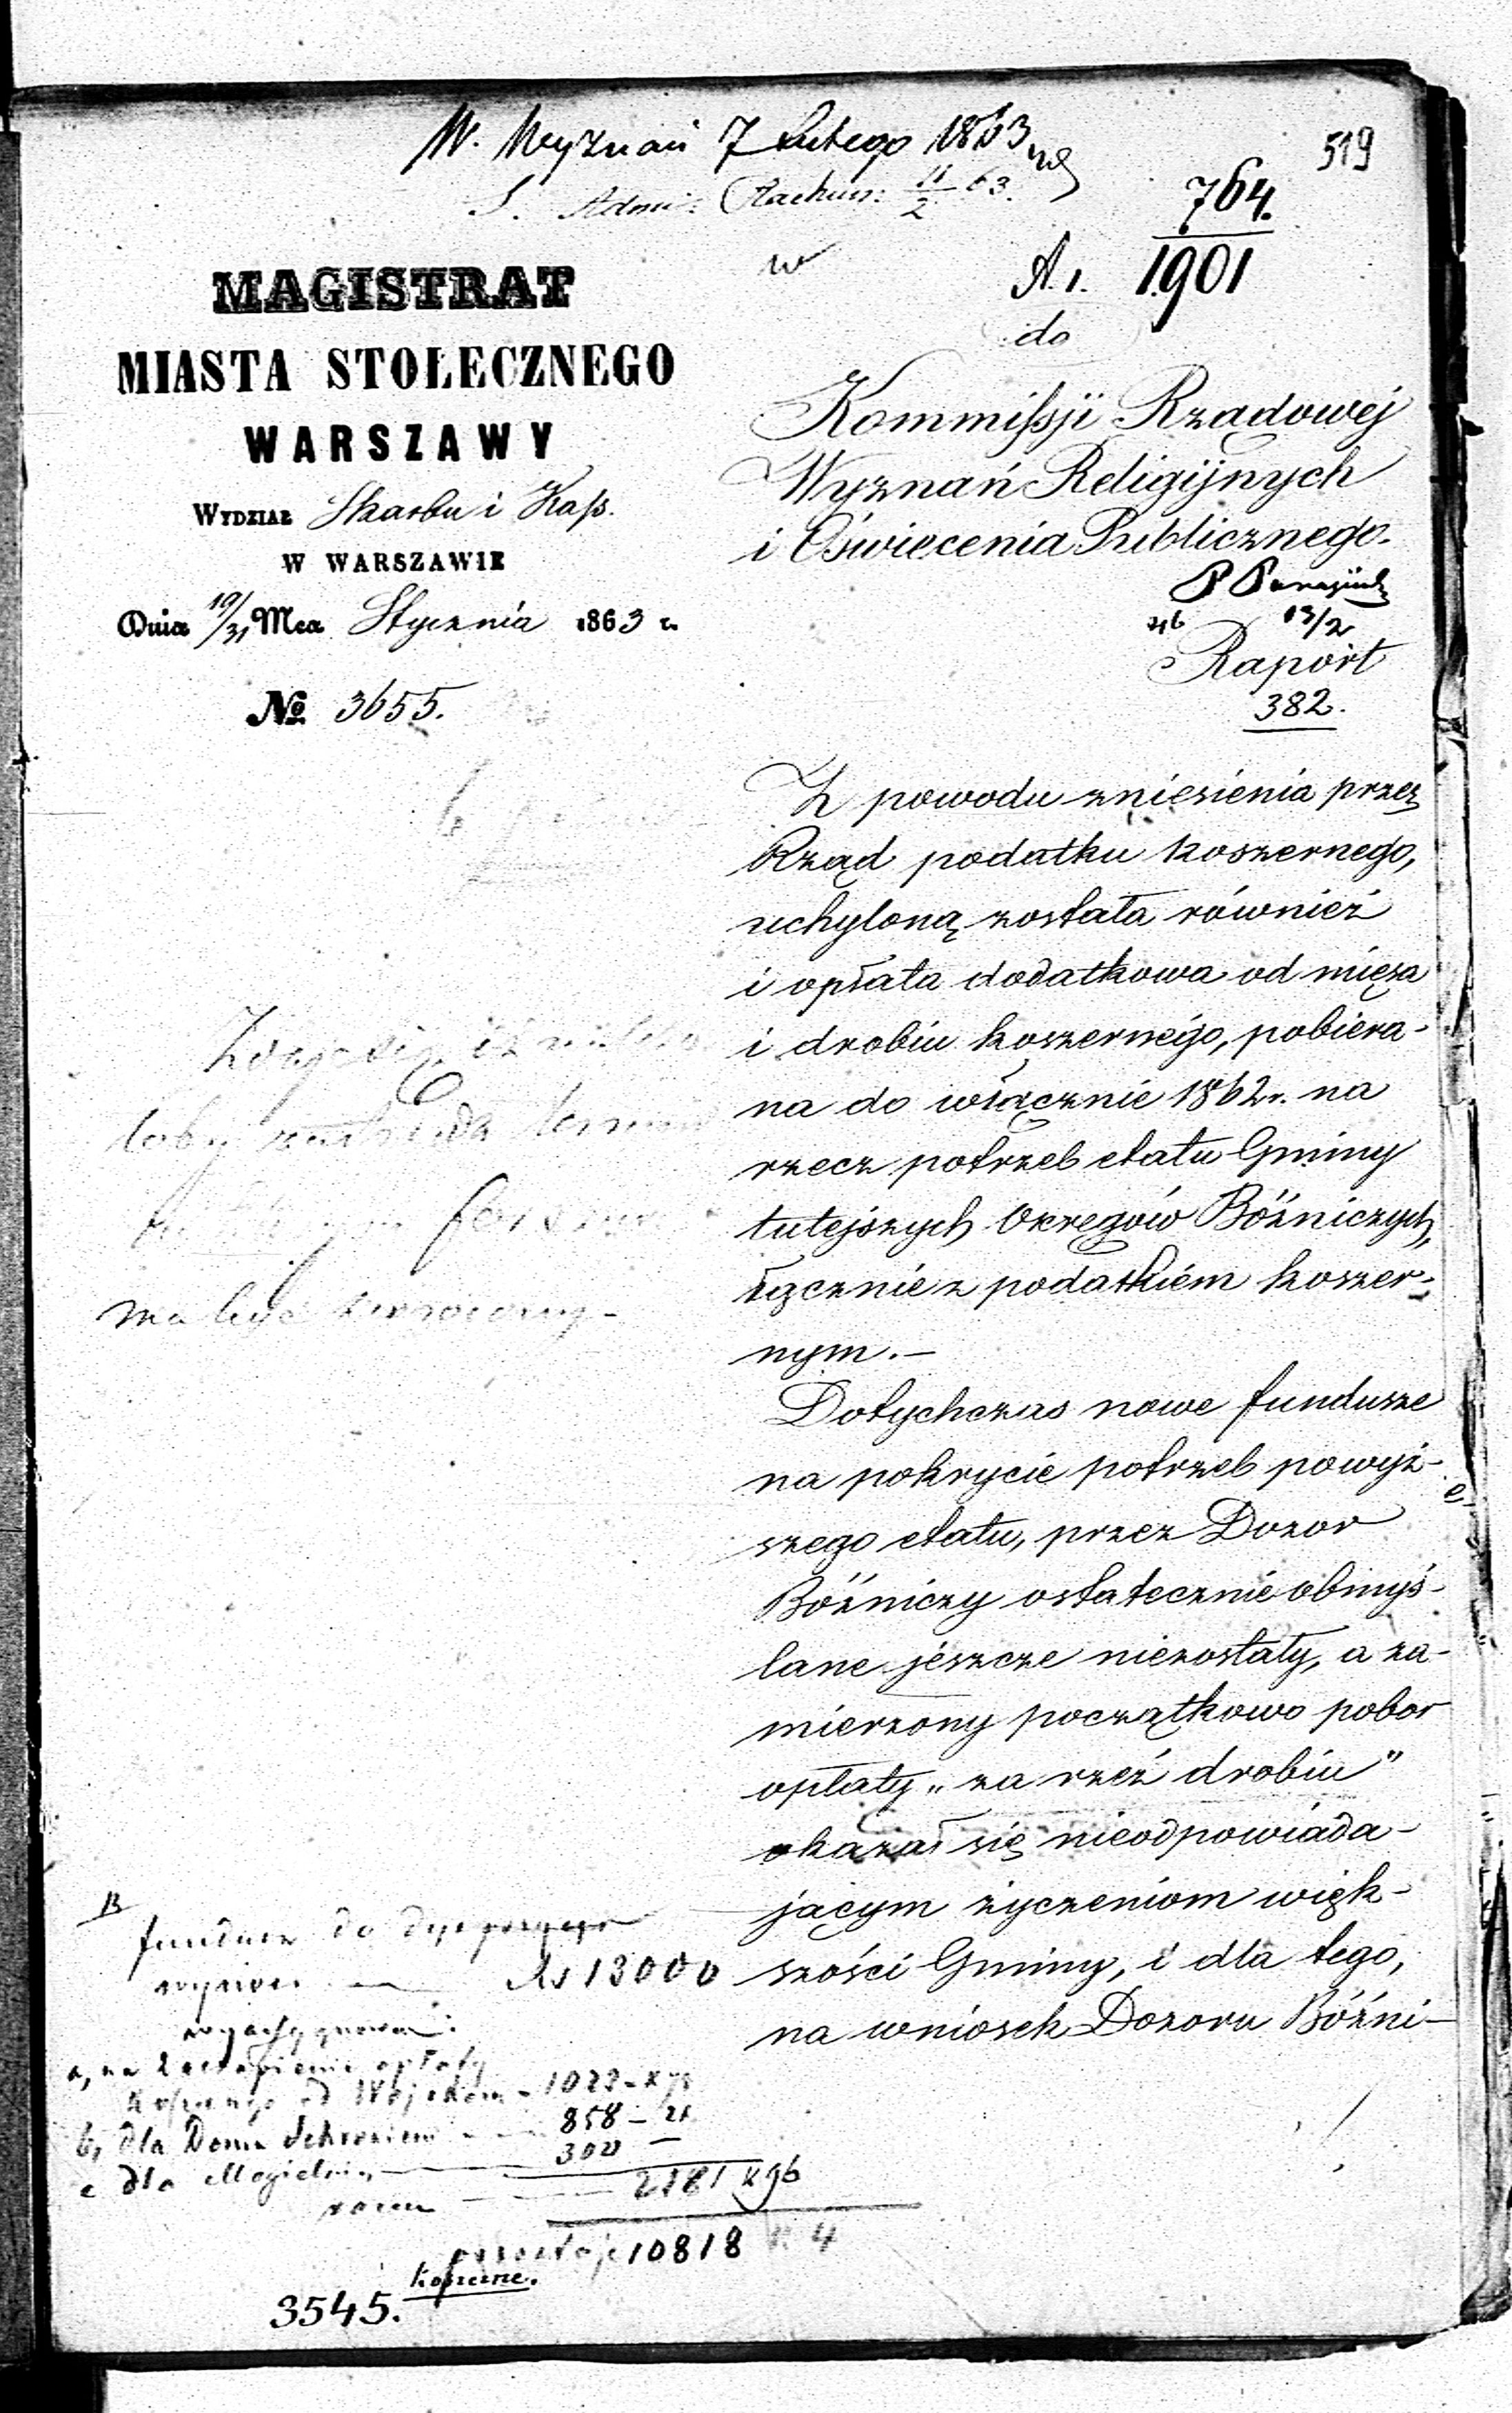 W. Wyznań 7 Lutego 1863
519
S. Adm: Rachun: 11/2 63.
764.
w
A. 1. 1901
do
MAGISTRAT
MIASTA STOŁECZNEGO
WARSZAWY
WYDZIAŁ Skarbu i Kass.
W WARSZAWIE
Dnia 19/31 Mca Stycznia 1863 r.
No 3655.
Kommissji Rządowej
Wyznań Religijnych
i Oświecenia Publicznego.
13/2
Raport
382.
Z powodu zniesienia przez
Rząd podatku koszernego,
uchyloną została również
i opłata dodatkowa od mięsa
i drobiu koszernego, pobiera-
na do włącznie 1862 r. na
rzecz potrzeb etatu Gminy
tutejszych Okręgów Bóźniczych,
łącznie z podatkiem koszer-
nym.—
Dotychczas nowe fundusze
na pokrycie potrzeb powyż-
szego etatu, przez Dozor
Bóźniczy ostatecznie obmyś-
lane jeszcze niezostały, a za-
mierzony początkowo pobor
opłaty „za rzeź drobiu"
okazał się nieodpowiada-
jącym życzeniom więk-
szości Gminy, i dla tego,
na wniosek Dozoru Bóźni-
Zdaje się, iż
ma być
fundusz do dyspozycyi
wynosi — Rs 13000
a, na zastąpienie opłaty
od Wojskow - 1022 -
b, dla Domu Schronien - 858 - 21
c dla — 300 —
razem — 2181 k 96
pozostaje 10818 k. 4
Koszerne.
3545.